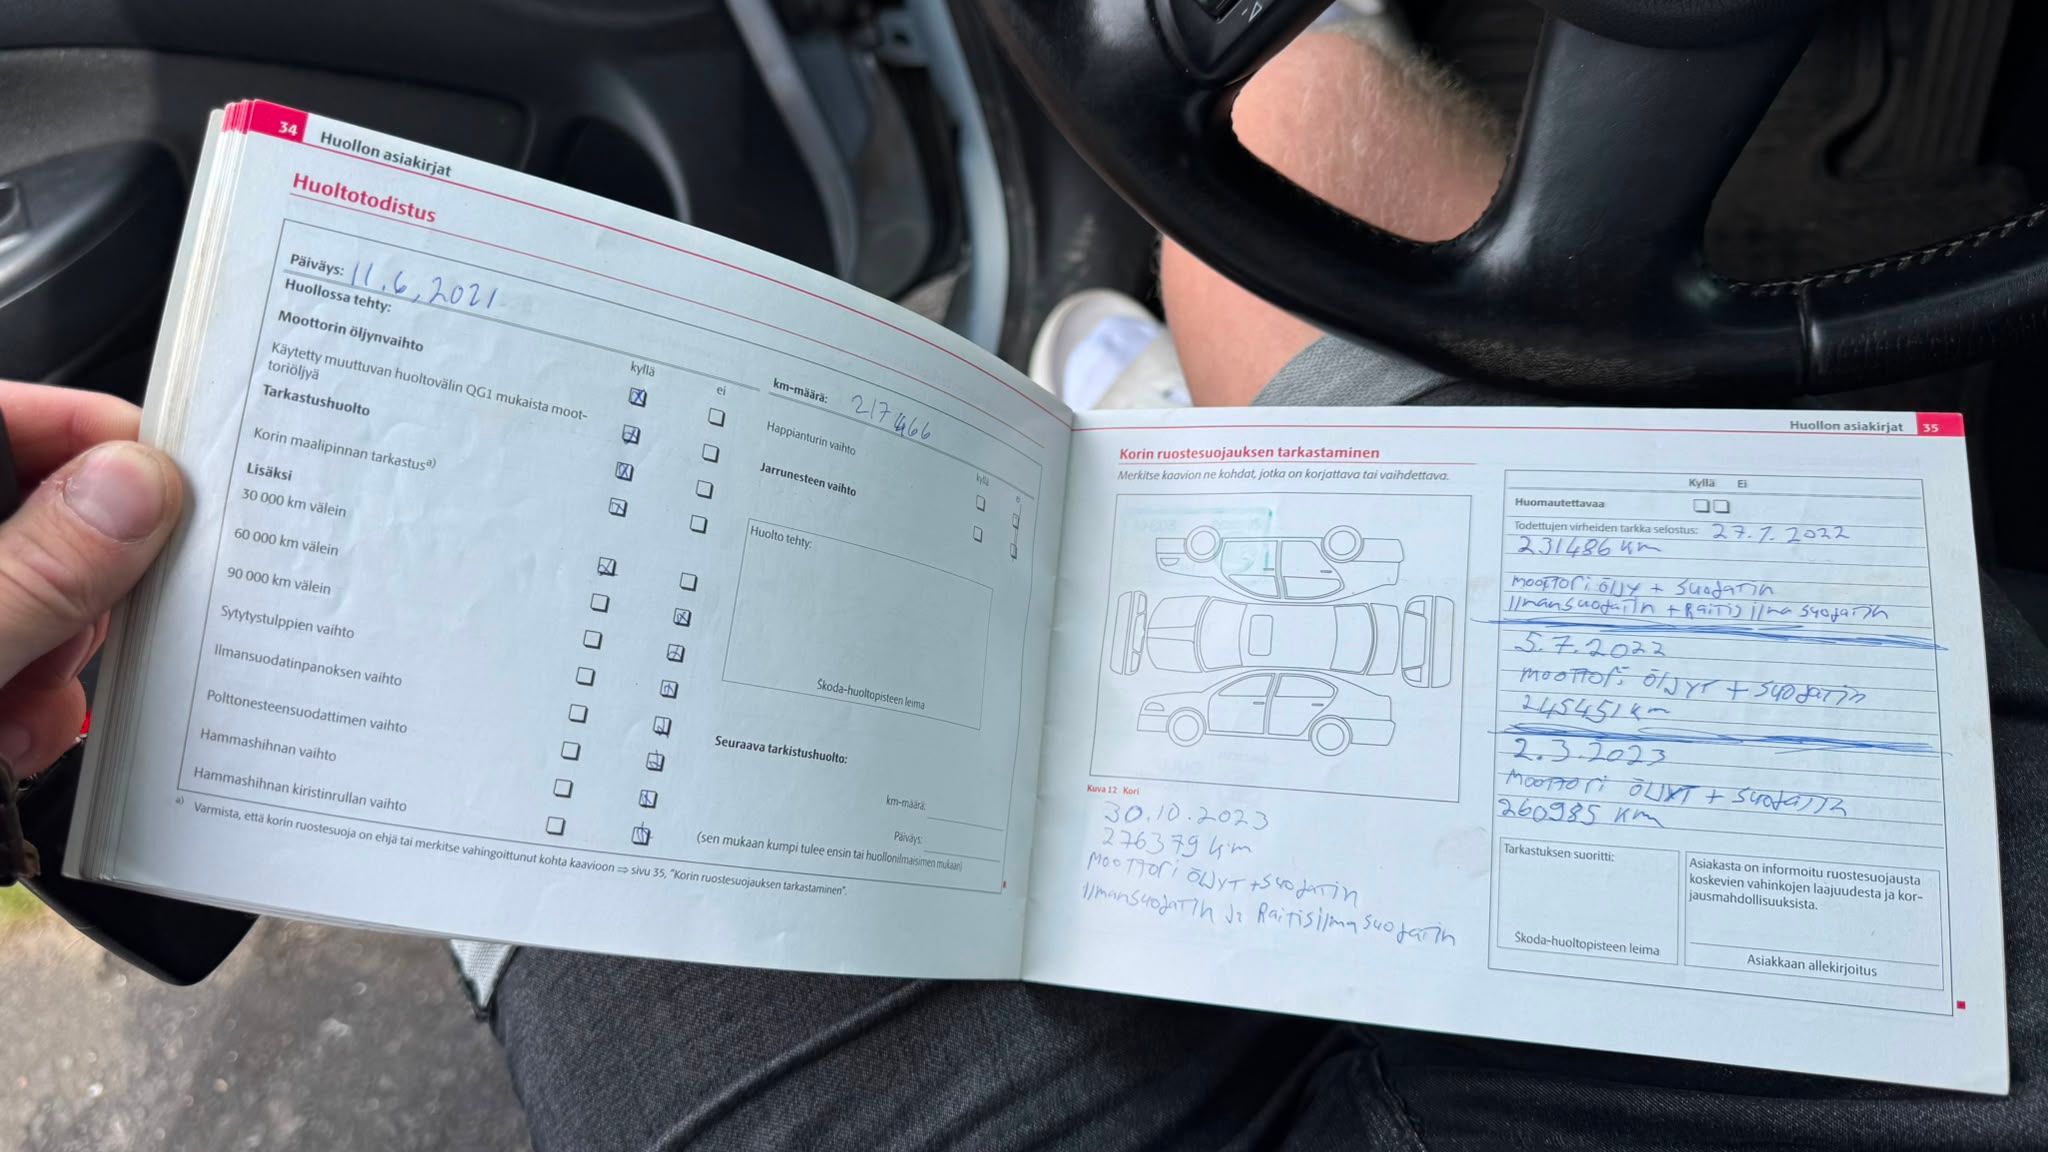 34
Huollon asiakirjat
Huoltotodistus
Päiväys: 11.6.2021
Huollossa tehty:
kyllä
ei
Moottorin öljynvaihto
Käytetty muuttuvan huoltovälin QG1 mukaista moot-
toriöljyä
Tarkastushuolto
Korin maalipinnan tarkastus a)
Lisäksi
30 000 km välein
60 000 km välein
90 000 km välein
Sytytystulppien vaihto
Ilmansuodatinpanoksen vaihto
Polttonesteensuodattimen vaihto
Hammashihnan vaihto
Hammashihnan kiristinrullan vaihto
km-määrä: 217466
kyllä
Happianturin vaihto
Jarrunesteen vaihto
Huolto tehty:
Škoda-huoltopisteen leima
Seuraava tarkistushuolto:
km-määrä:
Päiväys:
(sen mukaan kumpi tulee ensin tai huollonilmaisimen mukaan)
a) Varmista, että korin ruostesuoja on ehjä tai merkitse vahingoittunut kohta kaavioon ⇒ sivu 35, "Korin ruostesuojauksen tarkastaminen".
Huollon asiakirjat
35
Korin ruostesuojauksen tarkastaminen
Merkitse kaavion ne kohdat, jotka on korjattava tai vaihdettava.
Kuva 12 Kori
30.10.2023
276379 km
moottori öljyt + suodatin
ilmansuodatin ja Raitisilmasuodatin
Kyllä Ei
Huomautettavaa
Todettujen virheiden tarkka selostus: 27.1.2022
231486 km
moottori öljy + suodatin
ilmansuodatin + Raitisilma suodatin
5.7.2022
moottori öljyt + suodatin
245451 km
2.3.2023
moottori öljyt + suodatin
260985 km
Tarkastuksen suoritti:
Škoda-huoltopisteen leima
Asiakasta on informoitu ruostesuojausta
koskevien vahinkojen laajuudesta ja kor-
jausmahdollisuuksista.
Asiakkaan allekirjoitus